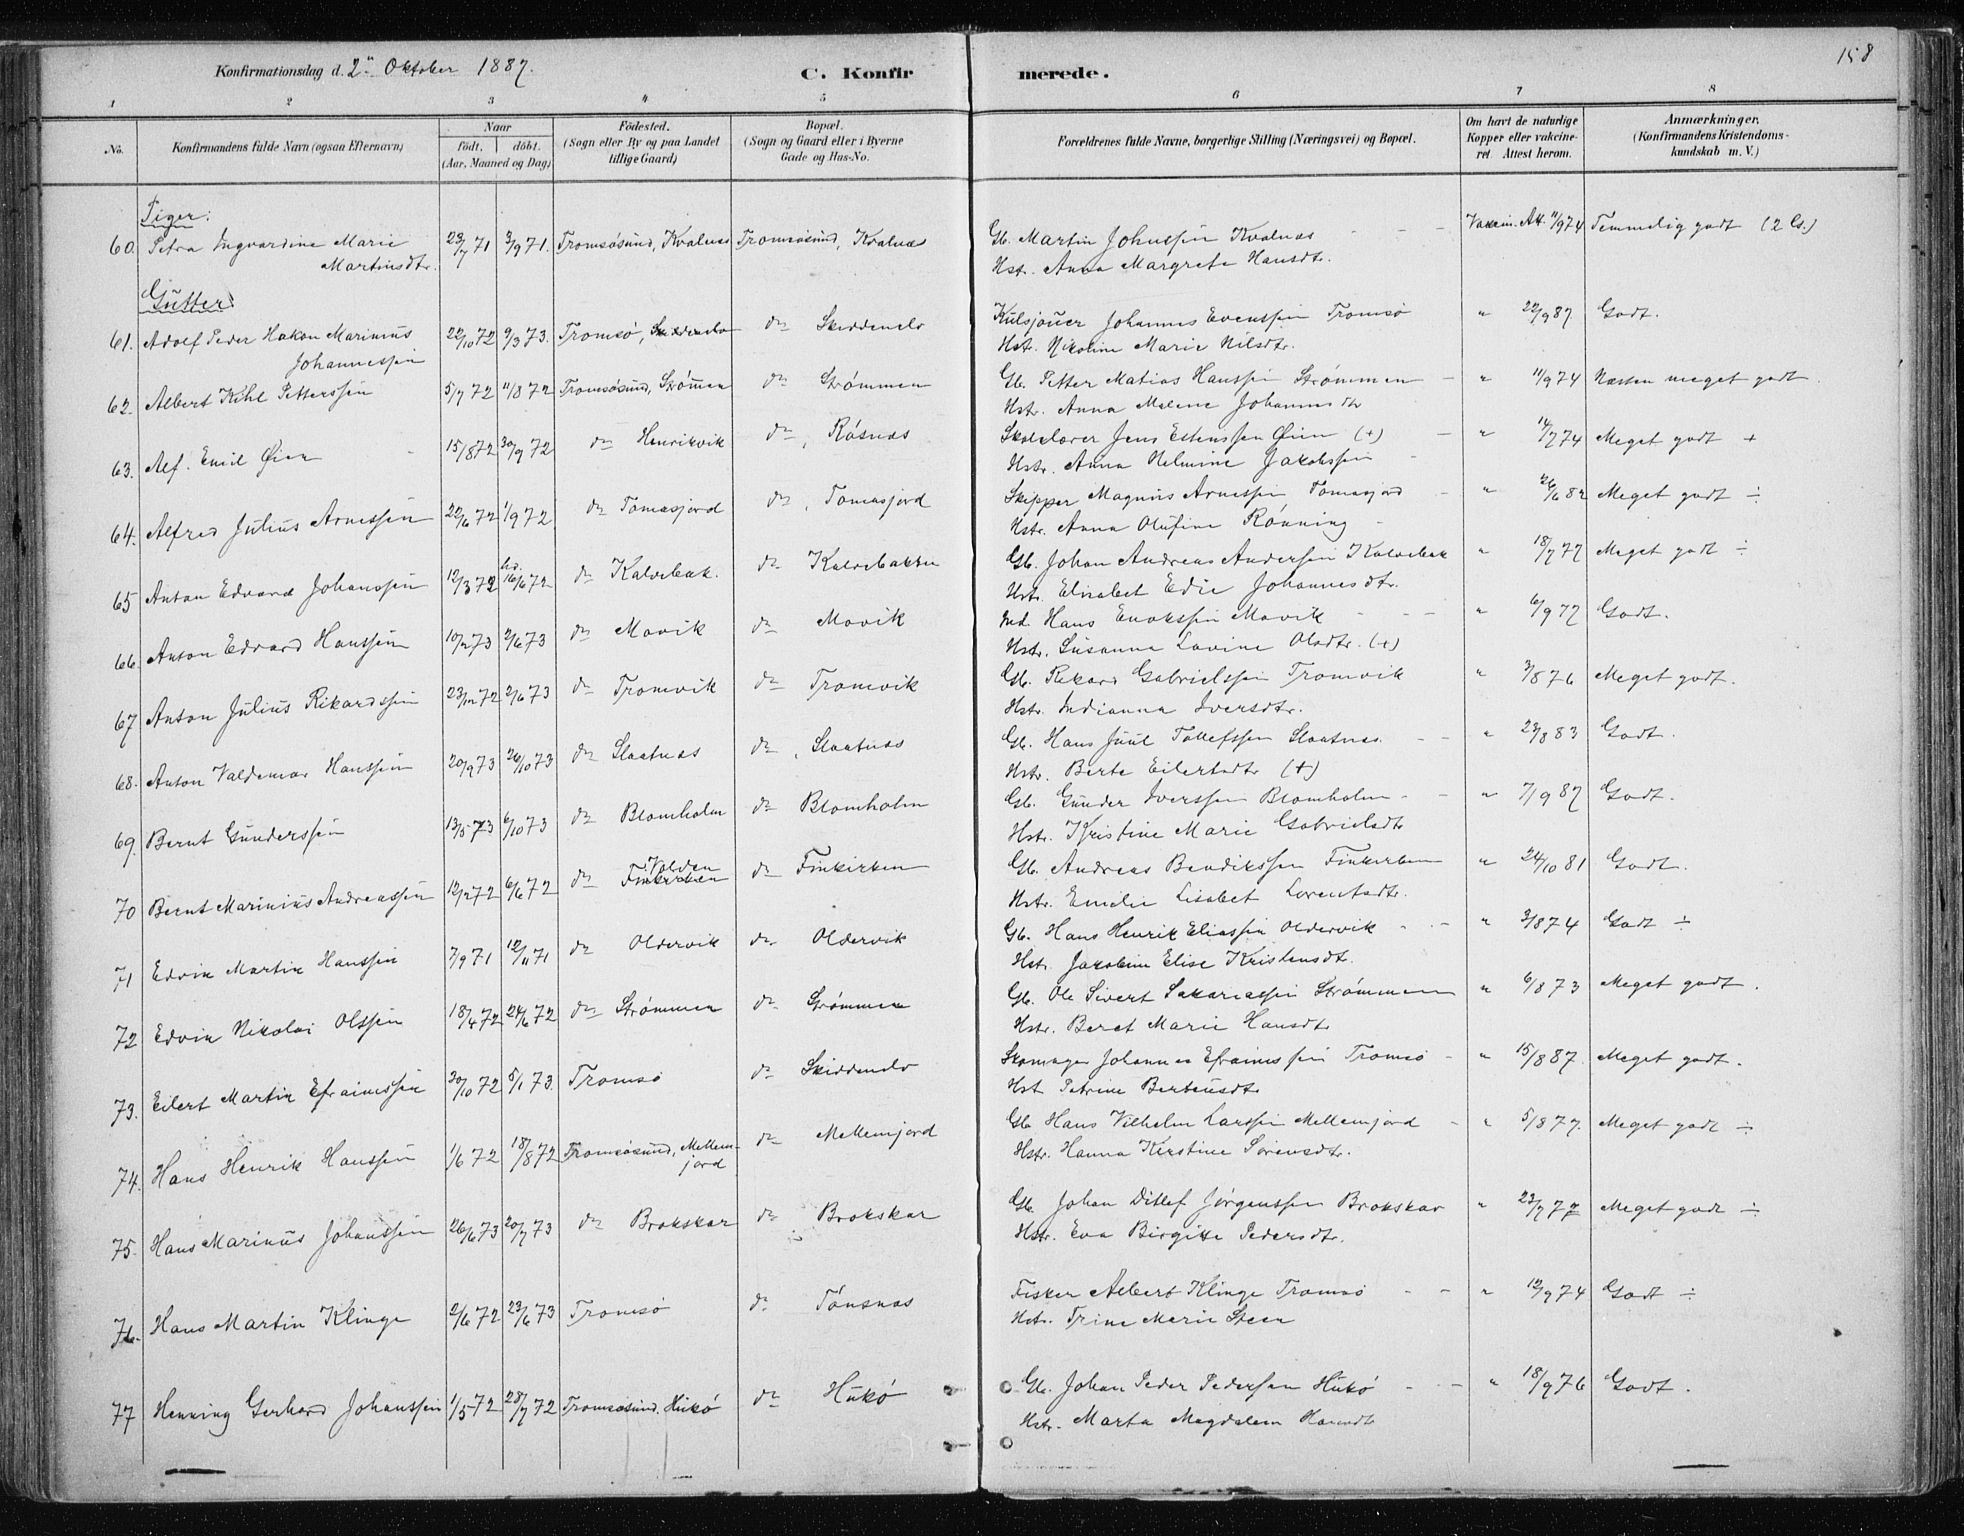 158
Konfirmationsdag d. 2n Oktober 1887. C. Konfirmerede.
1 2 3 4 5 6 7 8
No. Konfirmandens fulde Navn (ogsaa Efternavn) Naar født. døbt. (Aar, Maaned og Dag) Födested. (Sogn eller By og paa Landet tillige Gaard) Bopæl. (Sogn og Gaard eller i Byerne Gade og Hus-No. Forældrenes fulde Navne, borgerlige Stilling (Næringsvei) og Bopæl. Om havt de naturlige Kopper eller vakcineret. Attest herom. Anmærkninger. (Konfirmandens Kristendomskundskab m. V.)
Piger:
60. Petra Ingvardine Marie 23/7 71 3/9 71. Tromsøsund, Kvalnæs Tromsøsund, Kvalnæs Gb. Martin Johnssen Kvalnæs Vakcin. Att. 11/9 74 Temmelig godt (2 Gs.)
Martinsdtr. Hst. Anna Margrete Hansdtr.
Gutter:
61. Adolf Peder Hakon Marinius 22/10 72 9/3 73. Tromsø, Skiddenelv do Skiddenelv Kulsjouer Johannes Evenssen Tromsø " 22/9 87. Godt.
Johannessen Hst. Nikoline Marie Nilsdtr.
62. Albert Kihl Petterssen 5/7 72 11/8 72 Tromsøsund, Strømmen do Strømmen Gb. Petter Matias Hanssen Strømmen " 11/9 74 Næsten meget godt.
Hstr. Anna Malene Johannesdtr
63. Alf. Emil Øien 15/8 72 30/9 72 do Henrikvik do, Røsnæs Skolelærer Jens Estenssen Øien (+) " 14/7 74 Meget godt +
Hstr. Anna Helmine Jakobssen
64. Alfred Julius Arnessen 22/6 72 1/9 72 do Tomasjord do, Tomasjord Skipper Magnus Arnessen Tomasjord " 26/6 82 Meget godt ÷
Hstr. Anna Olufine Rønning
65 Anton Edvard Johanssen 12/3 72 hd. 16/6 72 do Kalvebak. do Kalvebakken Gb. Johan Andreas Anderssen Kalvebak " 18/7 77 Meget godt ÷
Hst. Elisabet Edie Johannesdtr.
66. Anton Edvard Hanssen 10/2 73 2/6 73 do Movik do Movik Ind. Hans Enokssen Movik " 6/9 77 Godt.
Hstr. Susanna Lovine Olsdtr. (+)
67 Anton Julius Rikardssen 23/12 72 2/6 73 do Tromvik do Tromvik Gb. Rikard Gabrielssen Tromvik " 3/8 76 Meget godt.
Hstr. Indianna Iversdtr.
68. Anton Valdemar Hanssen 20/9 73 26/10 73 do Slaatnæs do, Slaatnæs Gb. Hans Juul Tollefssen Slaatnæs " 23/8 83 Godt.
Hstr. Berte Eilertsdtr (+)
69. Bernt Gunderssen 13/5 73 6/10 73 do Blomholm do Blomholm Gb. Gunder Iverssen Blomholm " 7/9 87 Godt.
Hstr. Kristine Marie Gabrielsdtr
70 Bernt Marinius Andreassen 12/2 72 6/6 72 do Finkirken do Finkirken Gb. Andreas Bendikssen Finkirken " 24/10 81 Godt.
Hstr. Emelie Lisabet Lorentsdtr.
71 Edvin Martin Hanssen 7/9 71 12/11 71 do Oldervik do Oldervik Gb. Hans Henrik Eliassen Oldervik " 3/8 74 Godt ÷
Hstr. Jakobine Elise Kristensdtr.
72 Edvin Nikolai Olssen 18/4 72 24/6 72 do Strømmen do Strømmen Gb. Ole Sivert Sakariassen Strømmen " 6/8 73 Meget godt.
Hstr. Beret Marie Hansdtr
73. Eilert Martin Efraimssen 30/10 72 5/1 73. Tromsø do Skiddenelv Skomager Johannes Efraimssen Tromsø " 15/8 87. Meget godt.
Hst Petrine Bertensdtr
74. Hans Henrik Hanssen 1/6 72 18/8 72 Tromsøsund, Mellemjord do Mellemjord Gb Hans Vilhelm Larssen Mellemjord " 5/8 77. Meget godt ÷
Hstr. Hanna Kerstine Sørensdtr.
75. Hans Marinus Johanssen 26/6 73 20/7 73 do Brokskar do Brokskar Gb. Johan Ditlef Jørgenssen Brokskar " 23/7 77 Meget godt ÷
Hstr. Eva Birgitte Pedersdtr.
76. Hans Martin Klinge 2/6 72 23/6 73 Tromsø do Tønsnæs Fisker Albert Klinge Tromsø " 12/9 74 Godt ÷
Hstr. Trine Marie Steen
77 Henning Gerhard Johanssen 1/5 72 28/7 72 Tromsøsund. Hukø do Hukø Gb. Johan Peder Pedersen Hukø " 18/9 76 Godt.
Hstr. Marta Magdalena Hansdtr